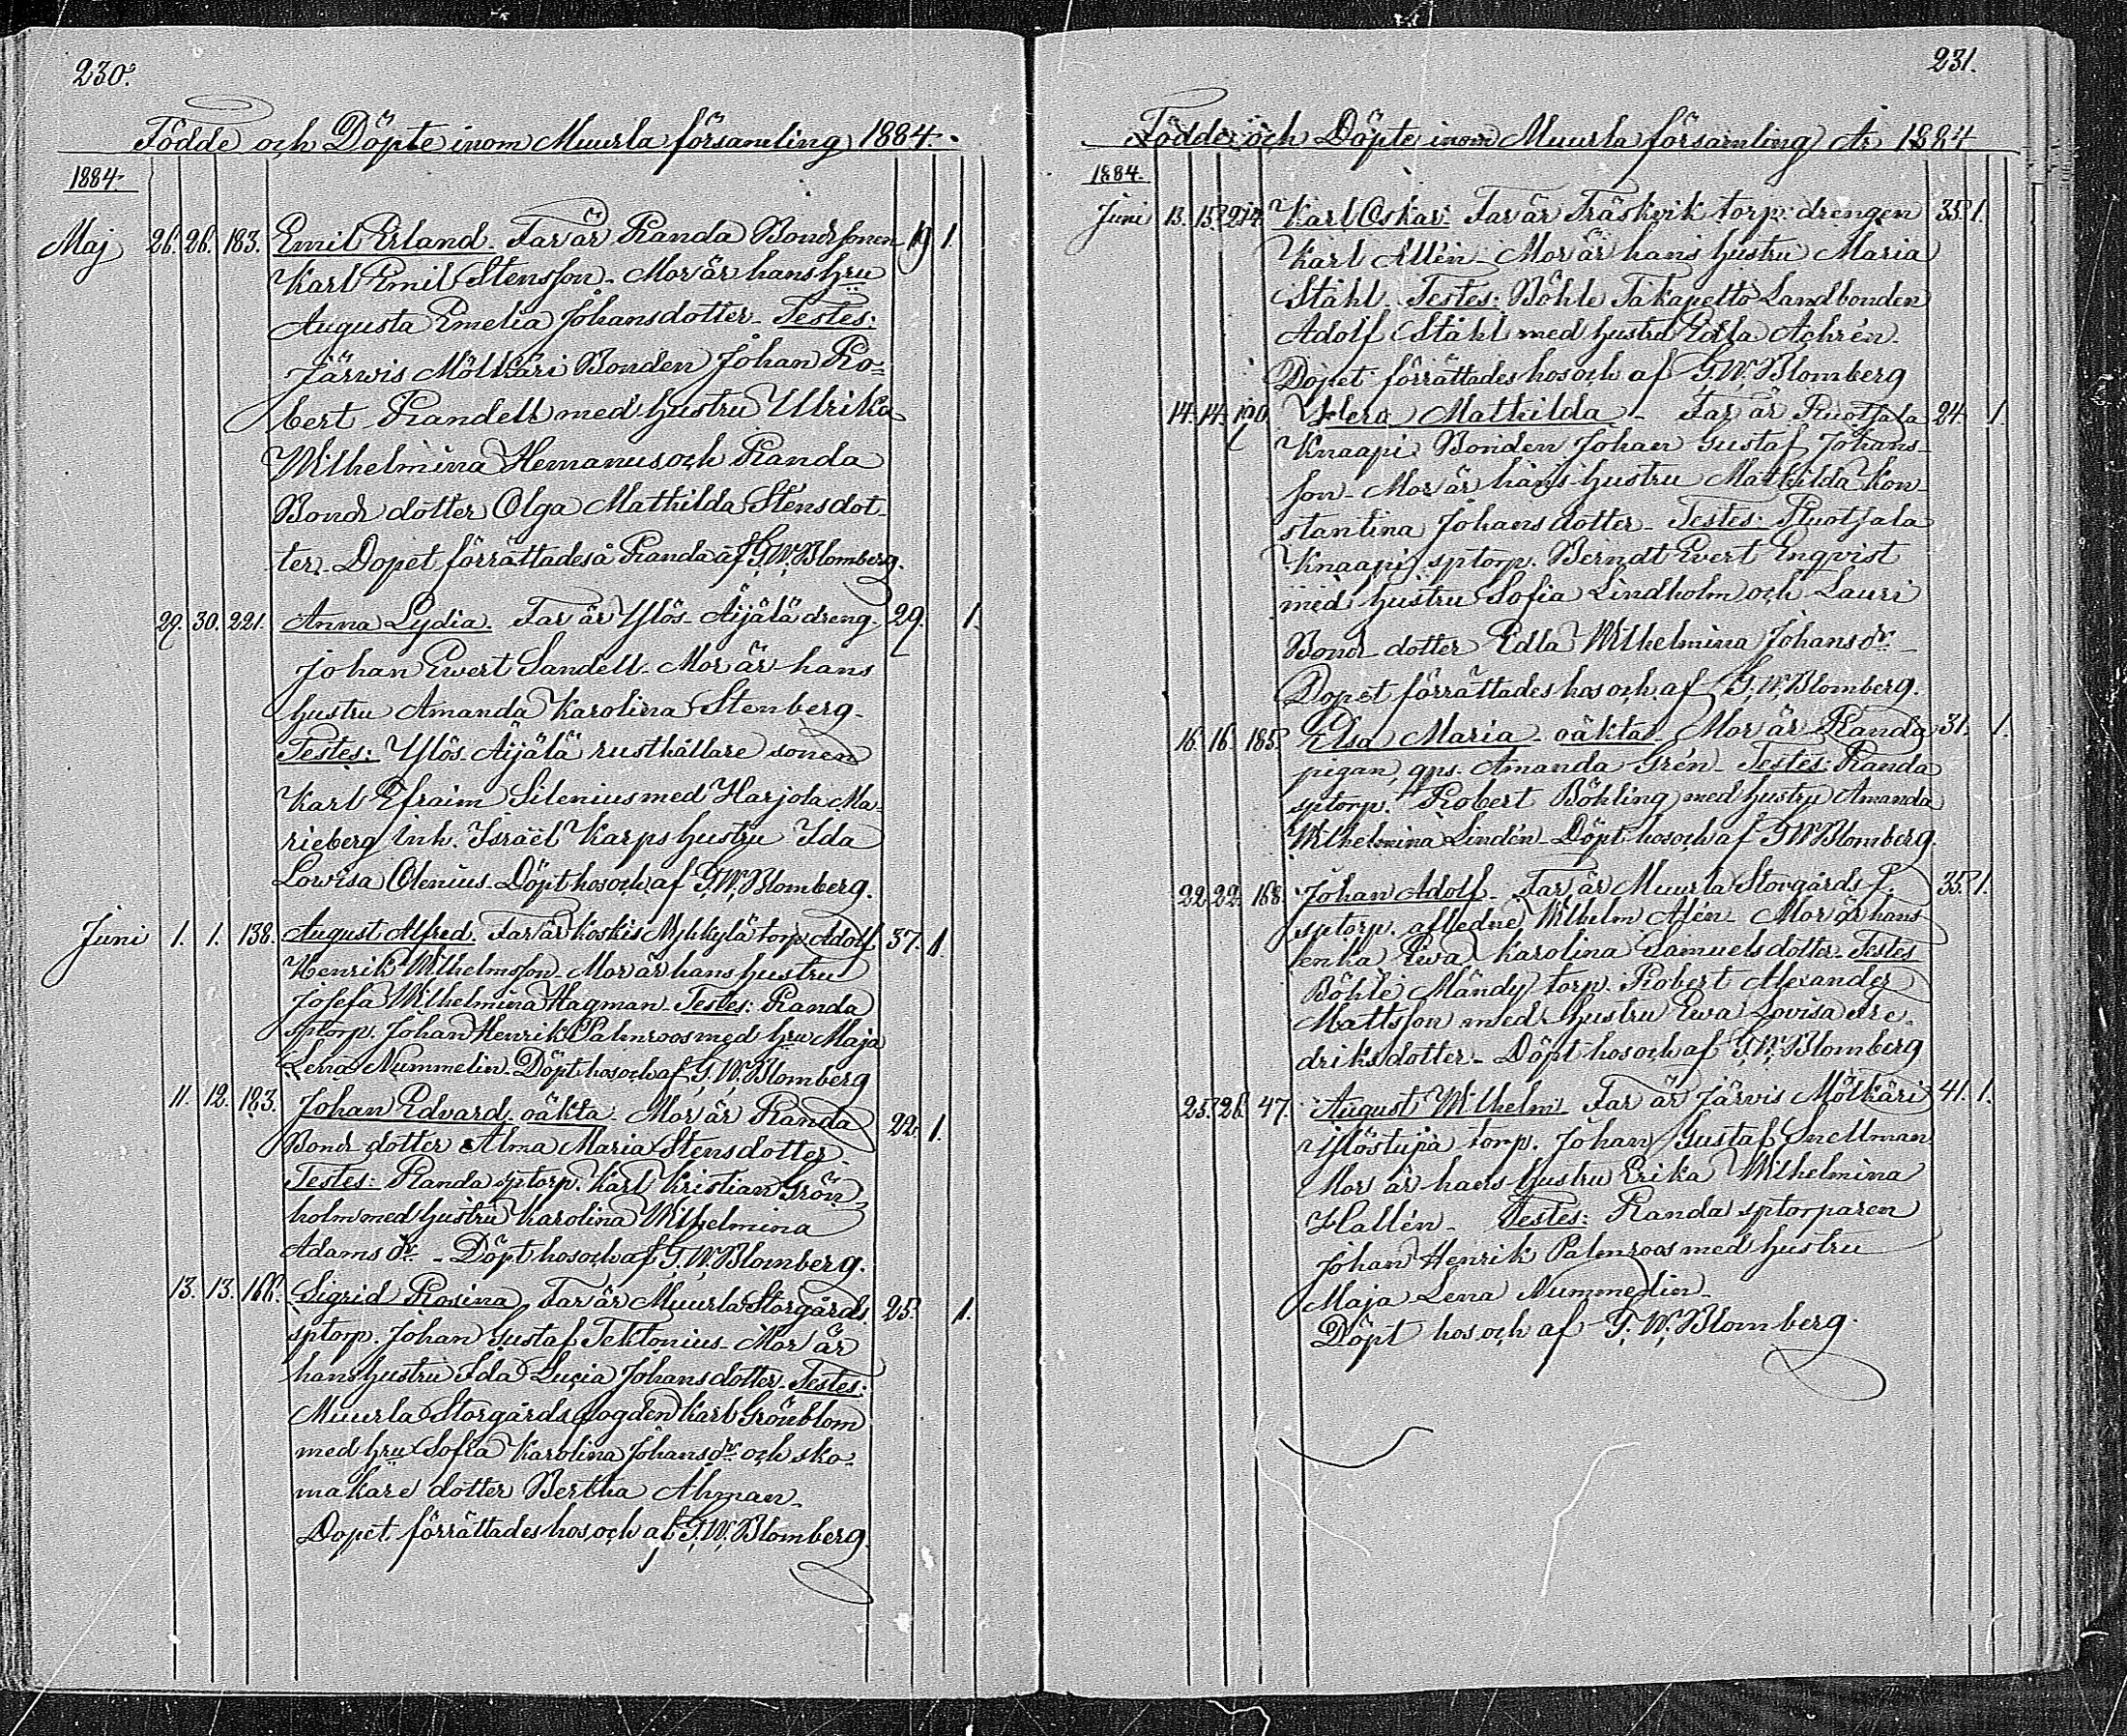 230.
Födde och Döpte inom Muurla församling 1884.
1884.
Maj 26. 26. 183. Emil Erland. Far är Randa Bondesonen 19 1.
Karl Emil Stensson. Mor är hans hru
Augusta Emelia Johansdotter. Testes:
Järwis Mölkäri Bonden Johan Ro=
bert Randell med hustru Ulrika
Wilhelmina Hemanus och Randa
Bonde dotter Olga Mathilda Stensdot-
ter. Dopet förrättades å Randa af G.W. Blomberg.
29. 30. 221. Anna Lydia. Far är Ylös-Äijälä dreng. 29. 1.
Johan Ewert Sandell. Mor är hans
hustru Amanda Karolina Stenberg.
Testes: Ylös-Äijälä rusthållare sonen
Karl Efraim Silenius med Harjola Ma-
rieberg Inh. Israël Karps hustru Ida
Lowisa Olenius. Döpt hos och af G.W. Blomberg.
Juni 1. 1. 138. August Alfred. Far är Koskis Nyhkylä torp. Adolf 37. 1.
Henrik Wilhelmsson. Mor är hans hustru
Josefa Wilhelmina Hagman. Testes: Randa
sptorp. Johan Henrik Palmroos med hru Maja
Lena Nummelin. Döpt hos och af G.W. Blomberg
11. 12. 183. Johan Edvard. oäkta. Mor är Randa 22. 1.
Bonde dotter Alma Maria Stensdotter.
Testes: Randa sptorp. Karl Kristian Grön-
holm med hustru Karolina Wilhelmina
Adamsdr. Döpt hos och af G.W. Blomberg.
13. 13. 166. Sigrid Rosina. Far är Muurla Storgårds 25. 1.
sptorp. Johan Gustaf Tektonius. Mor är
hans hustru Ida Lucia Johansdotter. Testes:
Muurla Storgårds fogden Karl Grönblom
med hru Sofia Karolina Johansdr och sko-
makare dotter Bertha Åhman.
Dopet förrättades hos och af G.W. Blomberg.
231.
Födde och Döpte inom Muurla församling År 1884
1884.
Juni 13. 15. 214. Karl Oskar. Far är Träskvik torp. drengen 35. 1.
Karl Allén. Mor är hans hustru Maria
Ståhl. Testes: Böhle Takapelto Landbonden
Adolf Ståhl med hustru Edla Achrén.
Dopet förrättades hos och af G.W. Blomberg
14. 14. 190. Wera Mathilda. Far är Ruotsala 24. 1.
Knaapi Bonden Johan Gustaf Johans-
son. Mor är hans hustru Mathilda Kon-
stantina Johansdotter. Testes: Ruotsala
Knaapi sptorp. Berndt Evert Enqvist
med hustru Sofia Lindholm och Lauri
Bonde dotter Edla Wilhelmina Johansdr.
Dopet förrättades hos och af G.W. Blomberg.
16. 16. 185. Elsa Maria. oäkta. Mor är Randa 31. 1.
pigan, qps. Amanda Grén. Testes: Randa
sptorp. Robert Böhling med hustru Amanda
Wilhelmina Lindén. Döpt hos och af G.W. Blomberg.
22. 22. 168. Johan Adolf. Far är Muurla Storgårds f. 35. 1.
sptorp. afledne Wilhelm Alén. Mor är hans
enka Ewa Karolina Samuelsdotter. Testes
Böhle Mändy torp. Robert Alexander
Mattsson med hustru Ewa Lovisa Fre-
driksdotter. Döpt hos och af G.W. Blomberg
25. 26. 47. August Wilhelm. Far är Järvis Mölkäri 41. 1.
Ylöstupa torp. Johan Gustaf Snellman
Mor är hans hustru Erika Wilhelmina
Hallén. Testes: Randa sptorparen
Johan Henrik Palmroos med hustru
Maja Lena Nummelin.
Döpt hos och af G.W. Blomberg.